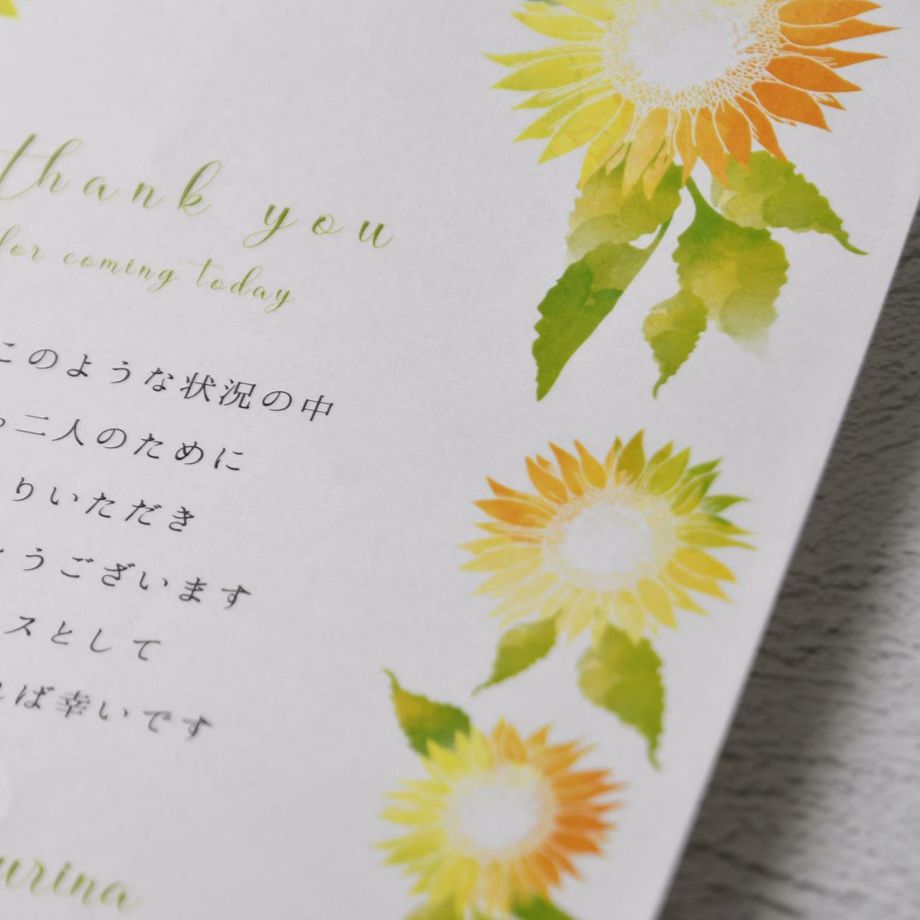 thank you
for coming today
このような状況の中
二人のために
りいただき
うございます
スとして
ば幸いです
urina